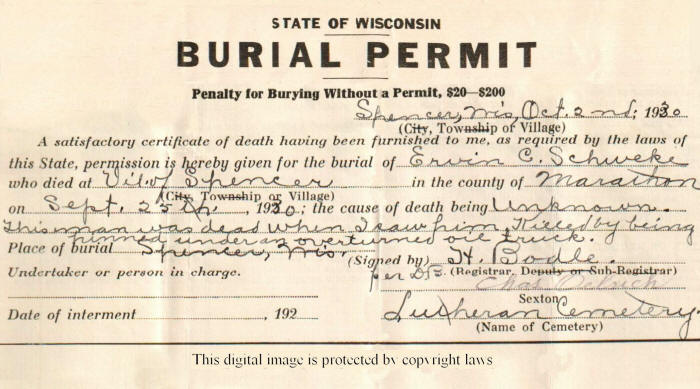 STATE OF WISCONSIN
BURIAL PERMIT
Penalty for Burying Without a Permit, $20—$200
Spencer, Wis, Oct. 2nd, 1930
(City, Township or Village)
A satisfactory certificate of death having been furnished to me, as required by the laws of
this State, permission is hereby given for the burial of Ervin C. Schweke
who died at Vil. of Spencer in the county of Marathon
(City, Township or Village)
on Sept. 25th, 1930; the cause of death being Unknown.
This man was dead when I saw him, Killed by being
pinned under an overturned oil truck.
Place of burial Spencer, Wis. (Signed by) H. Bodle.
per (Registrar, Deputy or Sub-Registrar)
Undertaker or person in charge.
Chas
Sexton
Date of interment , 192 Lutheran Cemetery.
(Name of Cemetery)
This digital image is protected by copyright laws